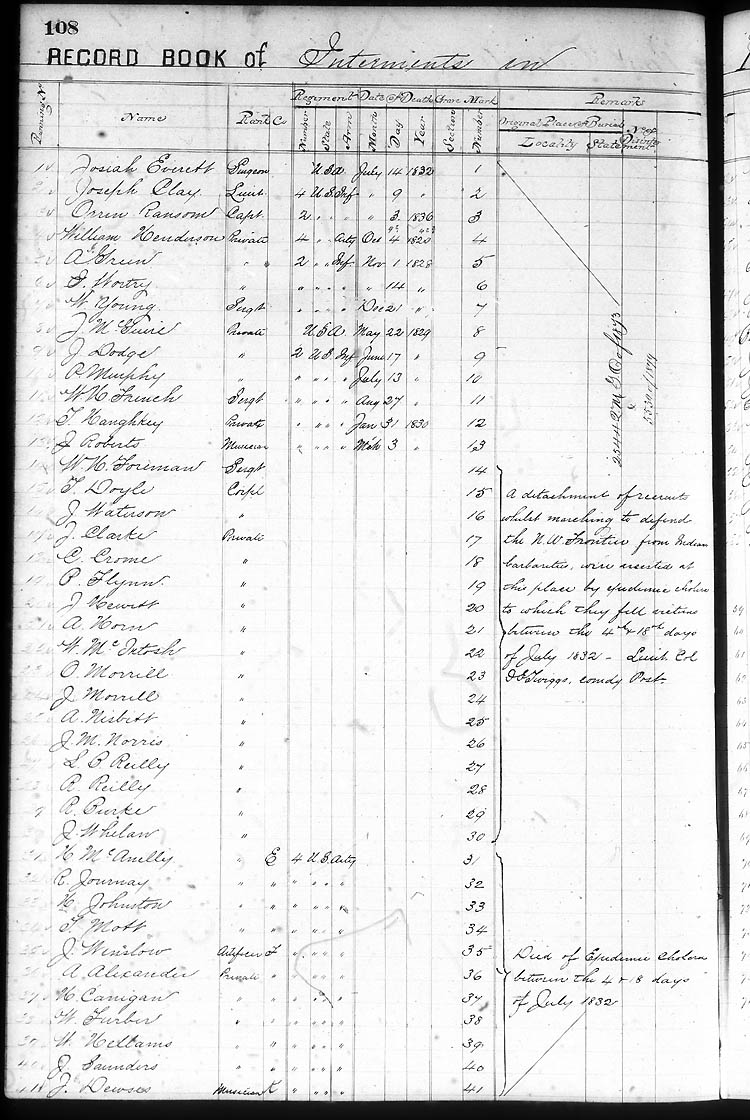 108
RECORD BOOK of Interments in
Name Rank Co Regiment Date of Death Grave Mark Remarks
Number State Arm Month Day Year Section Number Original Place of Burial
Locality Statement
1 Josiah Everett Surgeon U S A. July 14 1832 1
2 Joseph Clay Lieut 4 U S Inf " 9 " 2
3 Orrin Ransom Capt. 2 " " " 3 1836 3
4 William Henderson Private 4 " " Arty Oct 4 1820 4
5 A. Green " " 2 " " Inf Nov 1 1828 5
6 Wortry " " " " " " 14 " 6
7 W Young Sergt " " " " Dec 21 " 7
8 J. McGuire Private U S A. May 22 1829 8
9 J. Dodge " 2 U S. Inf June 17 " 9
P. Murphy " " " " " July 13 " 10
W H French Sergt " " " " Aug 27 " 11
T. Haughkey Private " " " " Jan 31 1830 12
J Roberts Musician " " " " Mch 3 " 13
25442 M G O of 1873
&
5330 of 1879
W. H. Foreman Sergt 14
T. Doyle Corpl 15 A detachment of recruits
J. Waterson " 16 whilst marching to defend
J. Clarke Private 17 the N.W. Frontier from Indian
C. Crome " 18 barbarities, were arrested at
P. Flynn " 19 this place by epidemic cholera
J Hewitt " 20 to which they fell victims
A. Horn " 21 between the 4th & 18th days
W. McIntosh " 22 of July 1832 – Lieut. Col
O. Morrill " 23 D E Twiggs, comdg Post.
J. Morrill " 24
A. Nisbett " 25
J. M. Norris " 26
L. B Reilly " 27
R. Reilly " 28
R. Burke " 29
J. Whelan " 30
H. McAnelly " E 4 U S. Arty 31
R. Journay " " " " " " 32
H. Johnston " " " " " " 33
T. Mott " " " " " " 34
J. Winslow Artificer F " " " " 35 Died of Epidemic Cholera
A. Alexander Private " " " " " 36 between the 4 & 18 days
H. Canigan " " " " " " 37 of July 1832
W. Furber " " " " " " 38
W. Hellams " " " " " " 39
J. Saunders " " " " " " 40
41 J. Dewses Musician K " " " " 41